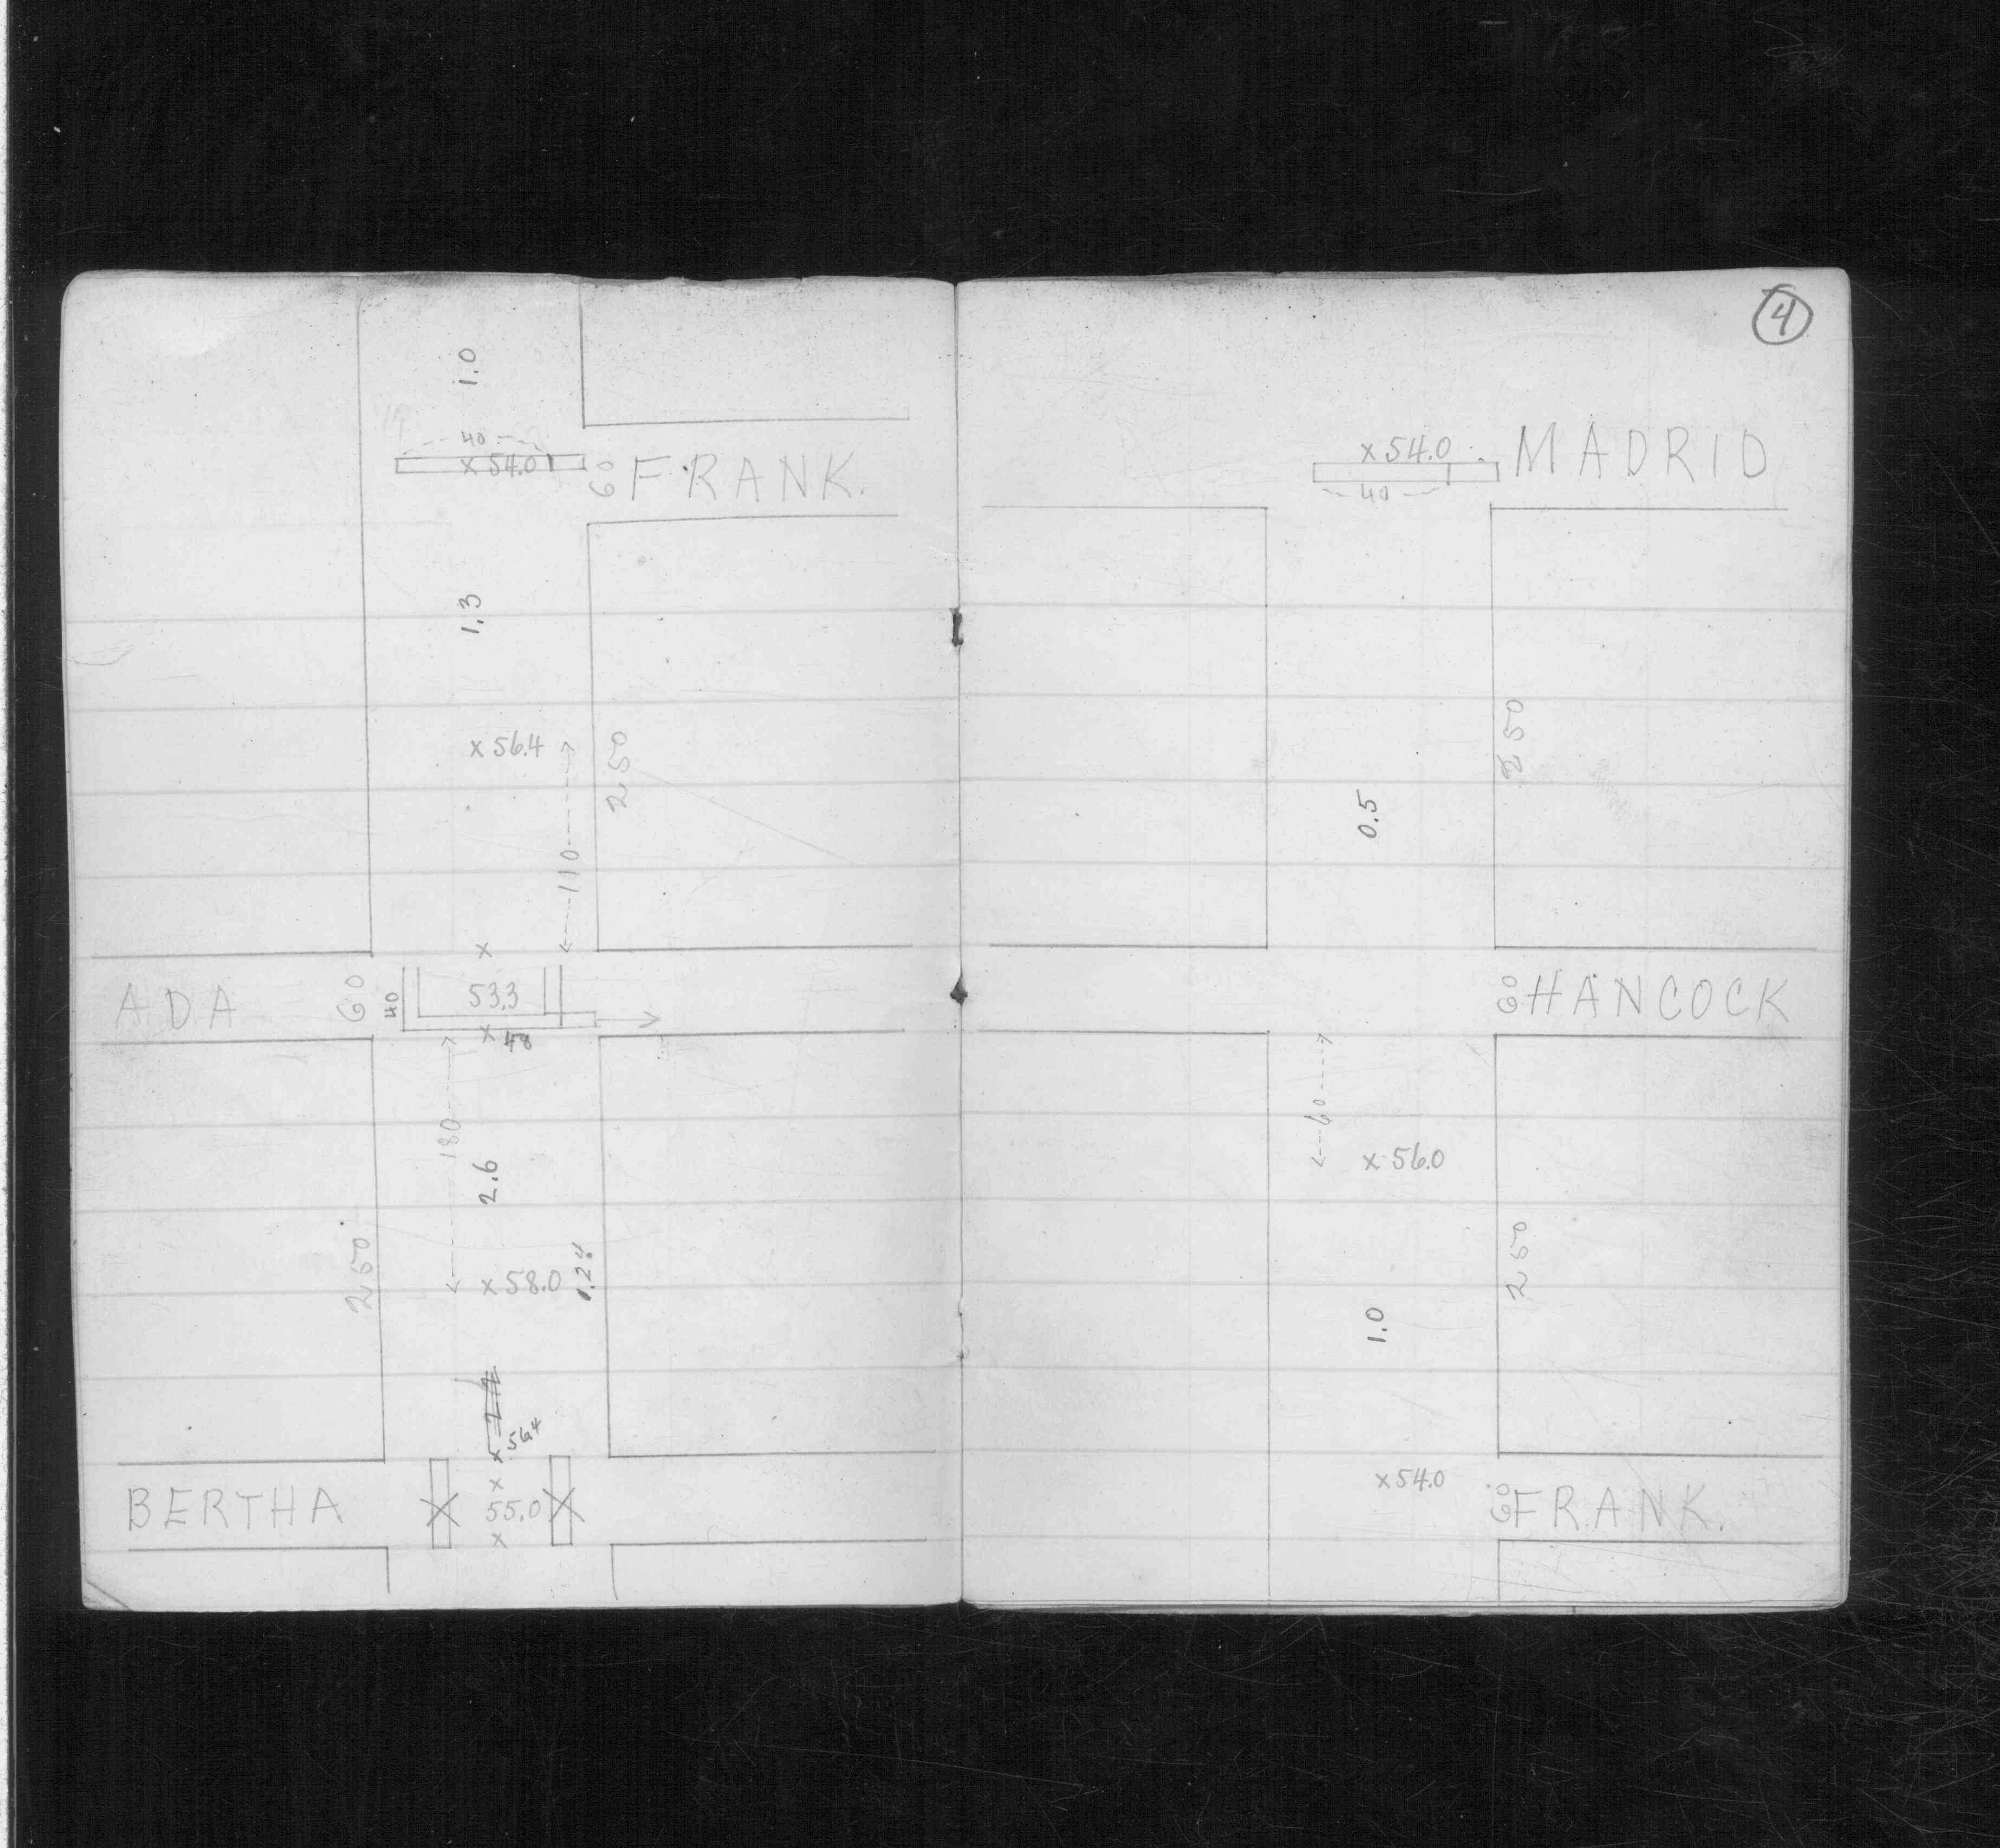 1.0
40
x 54.0
60
FRANK.
1.3
x 56.4
110
250
x
ADA
60
40
53.3
x 48
180
2.6
250
x 58.0
1.24
x 56.4
x
BERTHA
55.0
x
4
x 54.0
MADRID
40
250
0.5
60
HANCOCK
60
x 56.0
250
1.0
x 54.0
60
FRANK.